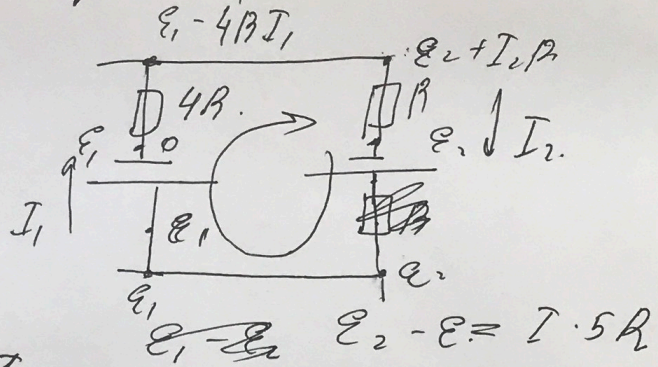 ℰ₁ - 4RI₁
ℰ₂ + I₂R
4R.
R
ℰ₁
0
ℰ₂
I₂.
I₁
ℰ₁
R
ℰ₁
ℰ₂
ℰ₁ - ℰ₂
ℰ₂ - ℰ = I · 5R